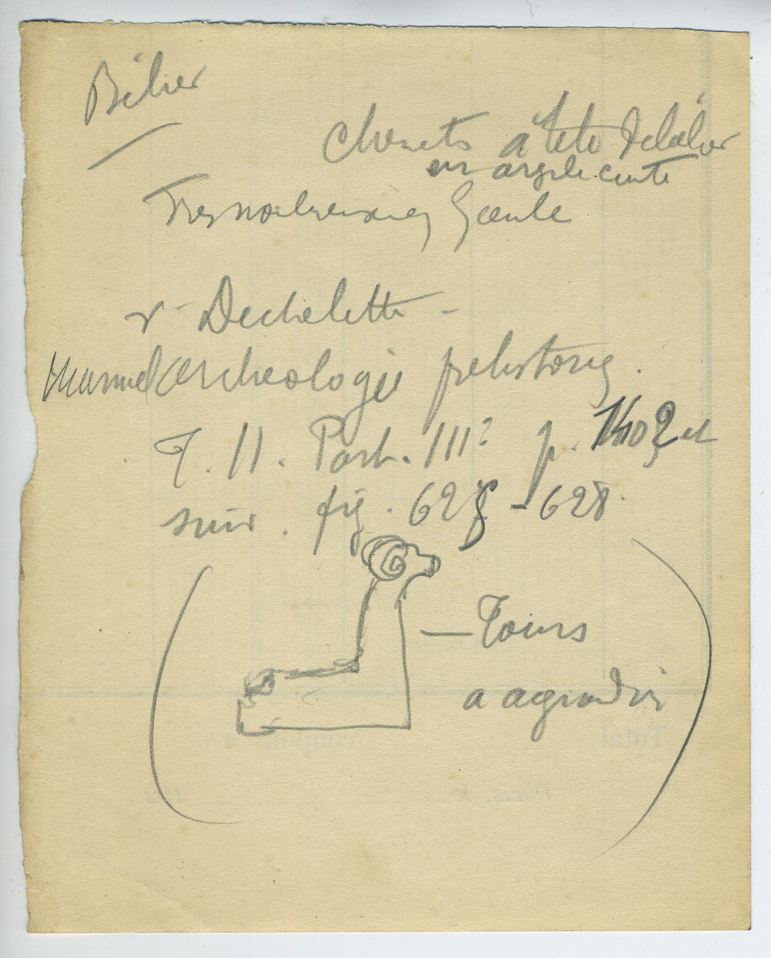 Bélier
Chenets à tête de bélier
en argile cuite
Tres nombreux en Gaule
v. Dechelette -
Manuel Archeologie prehistoriq.
T. II. Part. III? p. 1402 et
suiv. fig. 627 - 628.
— Tours
a agrandir